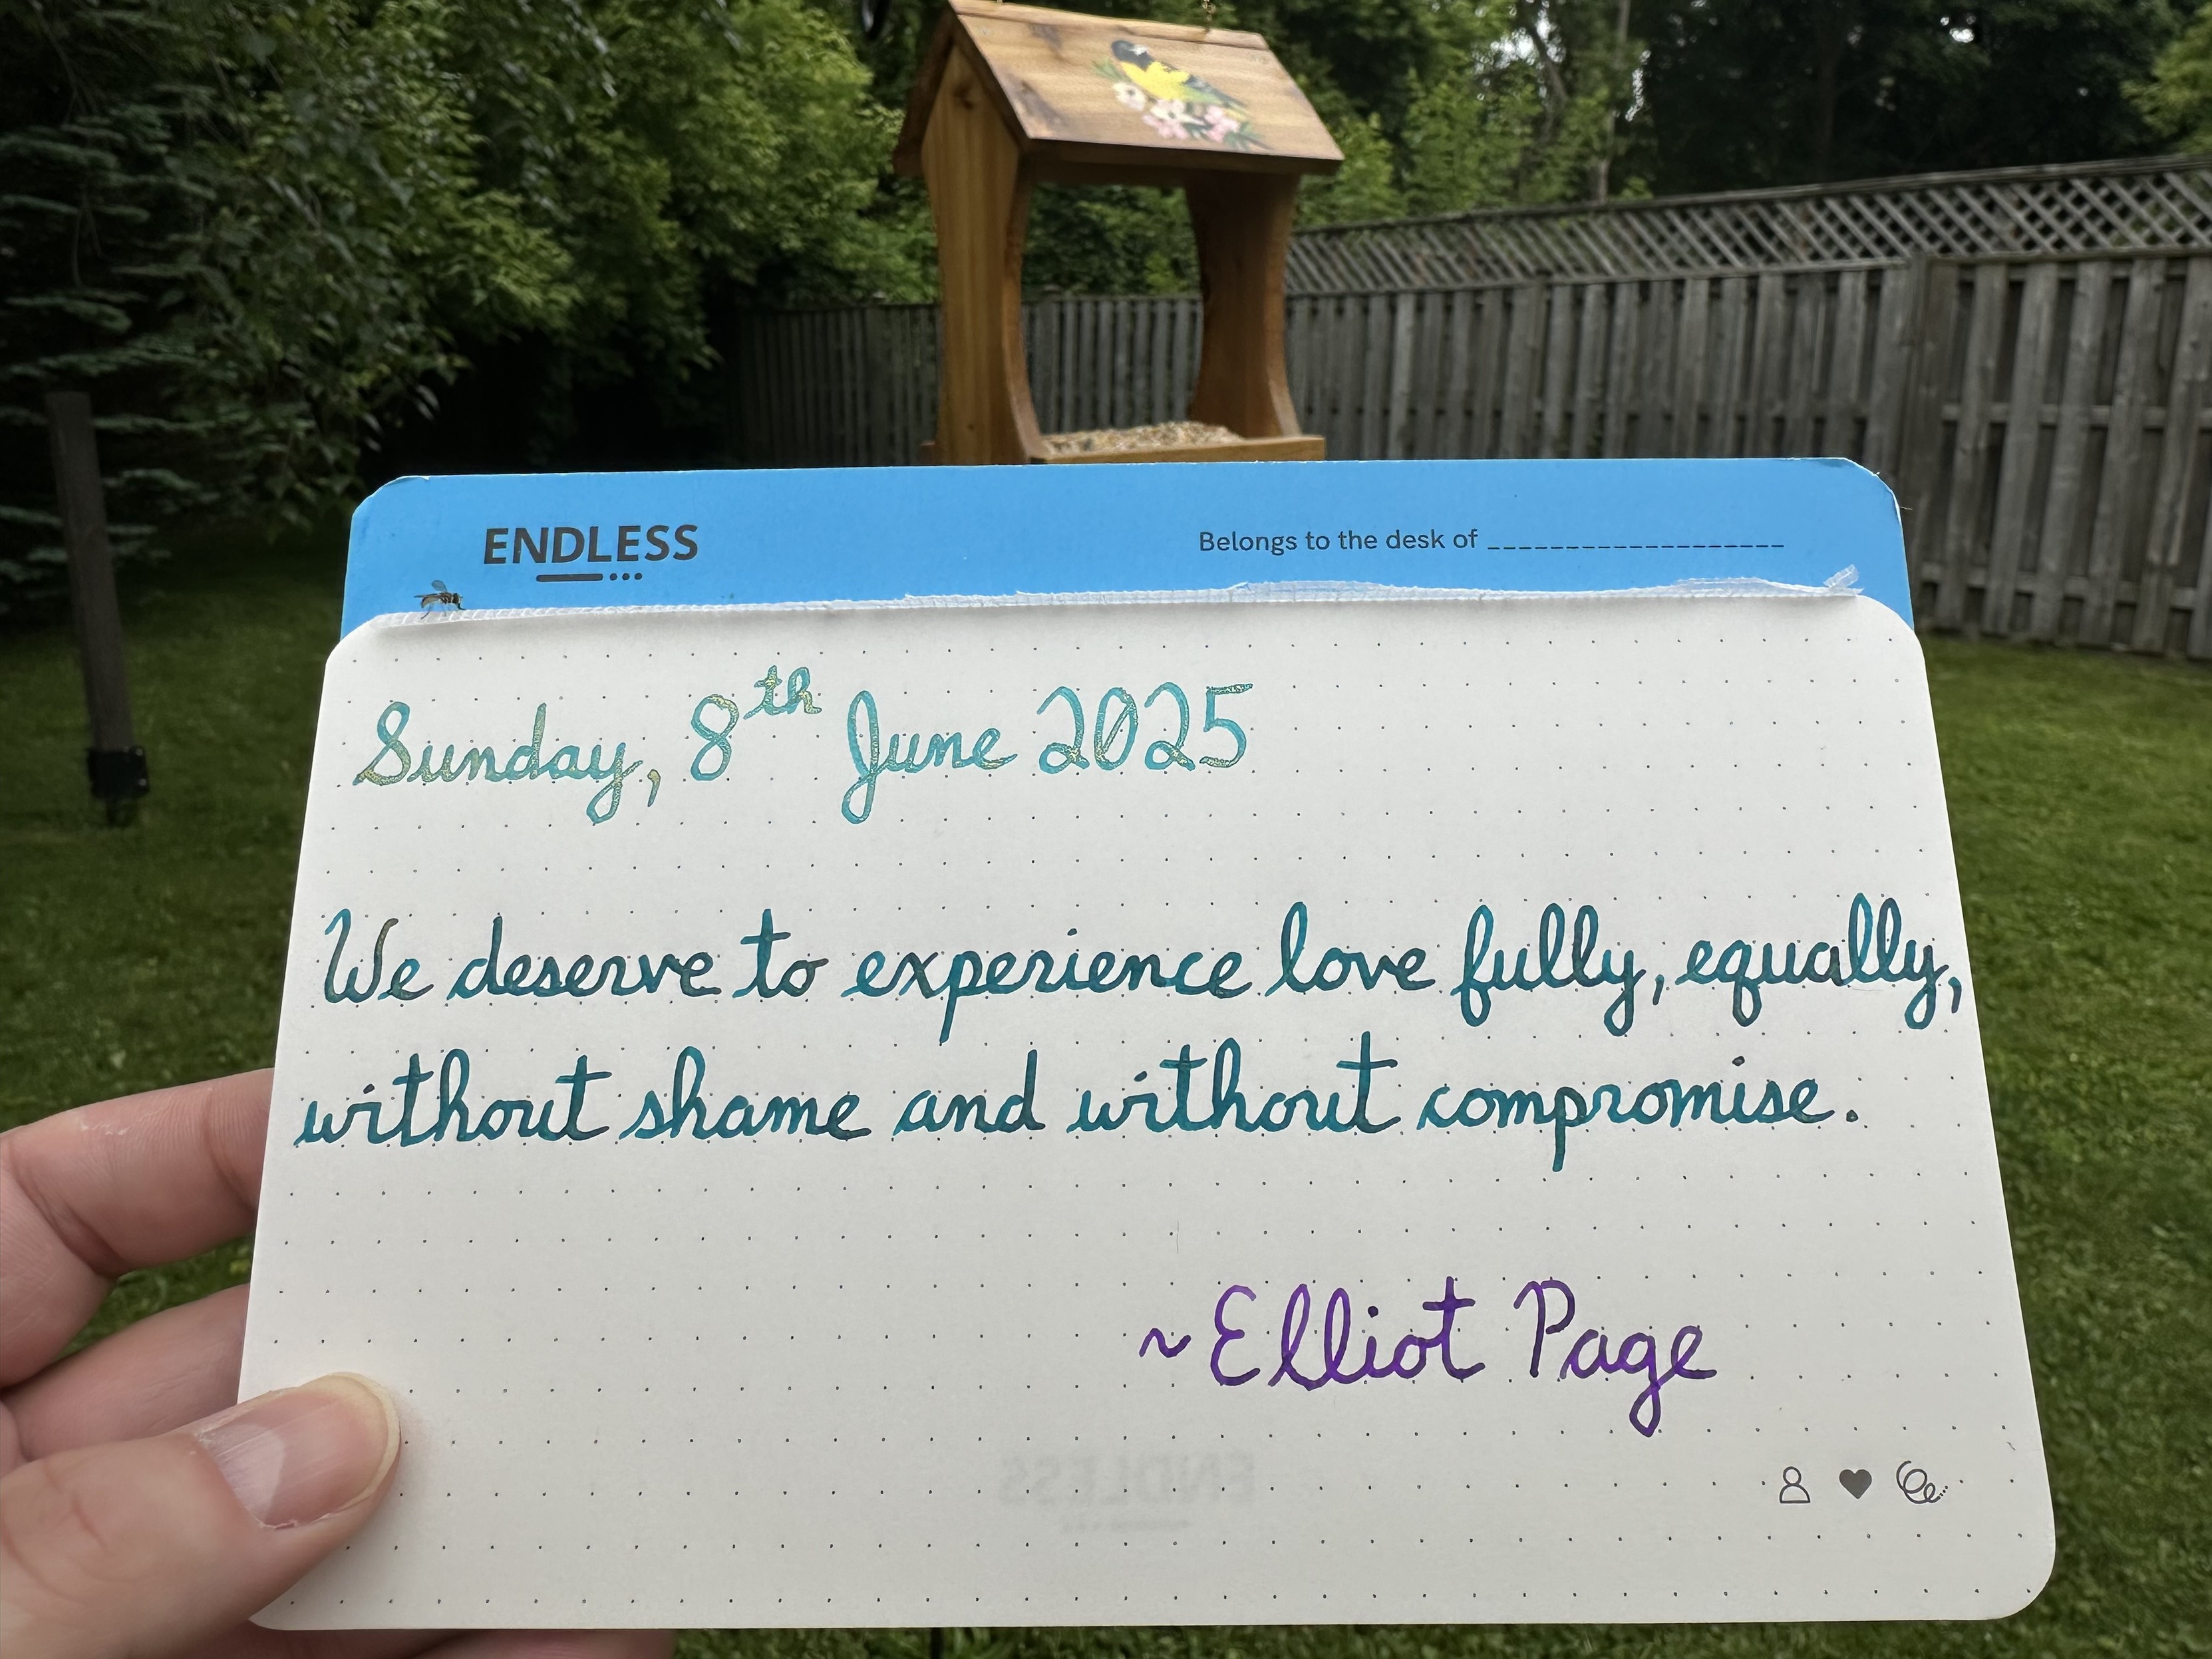 ENDLESS
Belongs to the desk of ____________________
Sunday, 8th June 2025
We deserve to experience love fully, equally,
without shame and without compromise.
~Elliot Page
ENDLESS